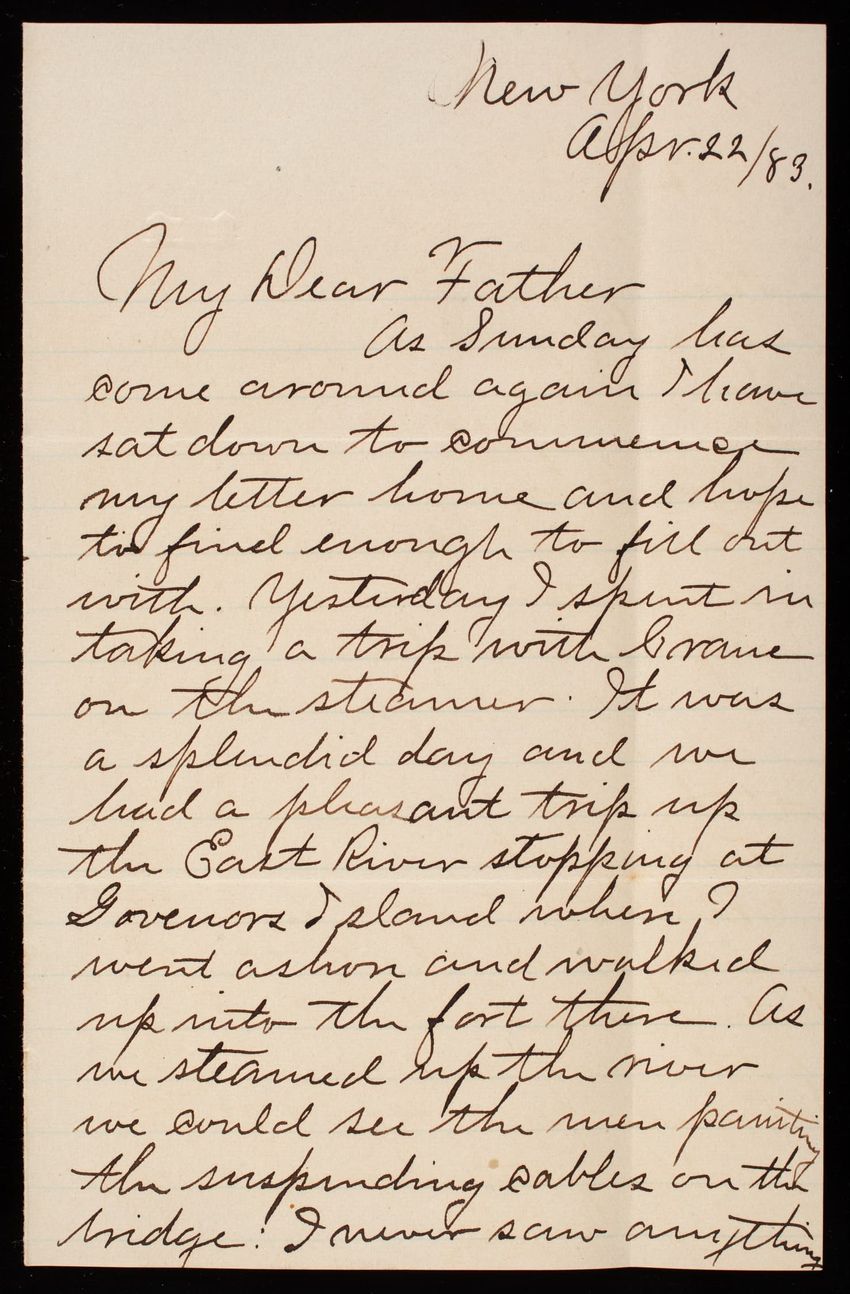 New York
Apr. 22/83.
My Dear Father
As Sunday has
come around again I have
sat down to commence
my letter home and hope
to find enough to fill out
with. Yesterday I spent in
taking a trip with Crane
on the steamer. It was
a splendid day and we
had a pleasant trip up
the East River stopping at
Govenors Island where I
went ashore and walked
up into the fort there. As
we steamed up the river
we could see the men painting
the suspending cables on the
bridge. I never saw anything